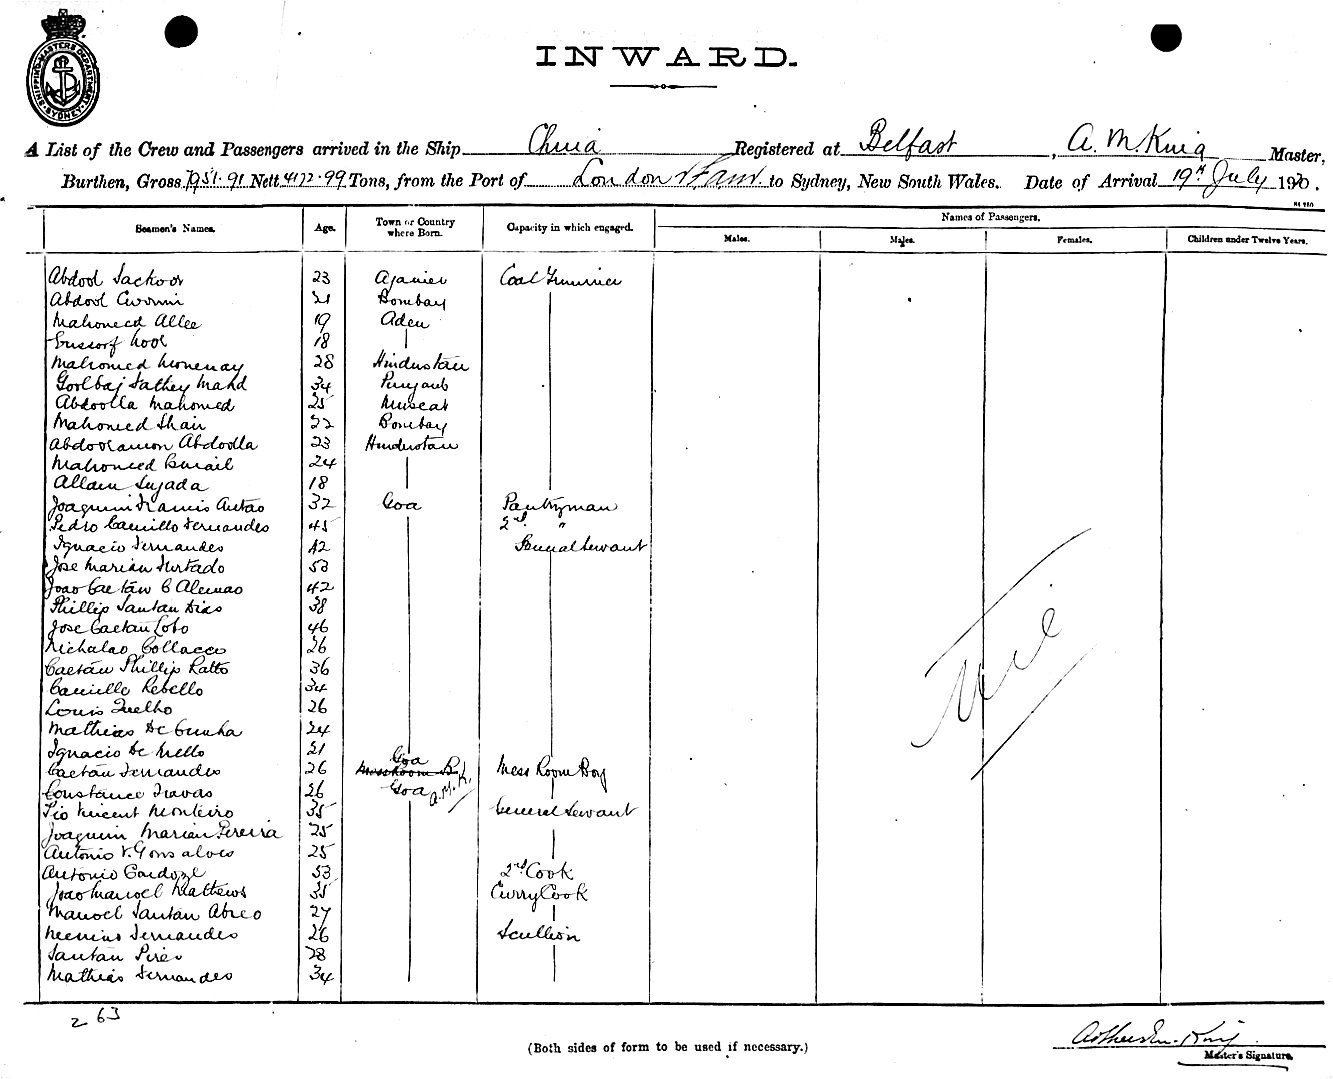 SHIPPING MASTERS DEPARTMENT SYDNEY
INWARD.
A List of the Crew and Passengers arrived in the Ship China Registered at Belfast, A. M. King Master,
Burthen, Gross 7951.91 Nett 4172.99 Tons, from the Port of London to Sydney, New South Wales. Date of Arrival 19th July 190.
Seamen's Names. Age. Town or Country where Born. Capacity in which engaged. Names of Passengers.
Males. Males. Females. Children under Twelve Years.
Abdool Sackoor 23 Coal Trimmer
Abdool 21 Bombay
Mahomed Allee 19 Aden
18
Mahomed 28 Hindustan
Goolbaj Sathey Mahd 34 Punjaub
Abdoolla Mahomed 25 Muscat
Mahomed Shair 22 Bombay
Abdoolamon Abdoolla 23 Hindustan
Mahomed Esmail 24
Allam Sujada 18
Joaquim Francis Antao 32 Goa Pantryman
Pedro Camillo Fernandes 45 2nd "
Ignacio Fernandes 42 General Servant
Jose Marian Furtado 53
Joao Caetan C Alemao 42
Phillip Santan Dias 38
Jose Caetan Lobo 46
Nichalao Collacco 26
Caetan Phillip Ratto 36
Camillo Rebello 34
Louis Quelho 26
Mathias De Cunha 24
Ignacio De Mello 21
Caetan Fernandes 26 Goa Mess Room B Mess Room Boy
Constance Travas 26 Goa A.M.K.
Pio Vincent Monteiro 35 General Servant
Joaquim Marian Pereira 25
Antonio V. Gonsalves 25
Antonio Cardoze 53 2nd Cook
Joao Manoel Mathews 35 Curry Cook
Manoel Santan Abreo 27
Fernandes 26 Scullion
Santan Pires 28
Mathias Fernandes 34
Nil
263
(Both sides of form to be used if necessary.)
Master's Signature.